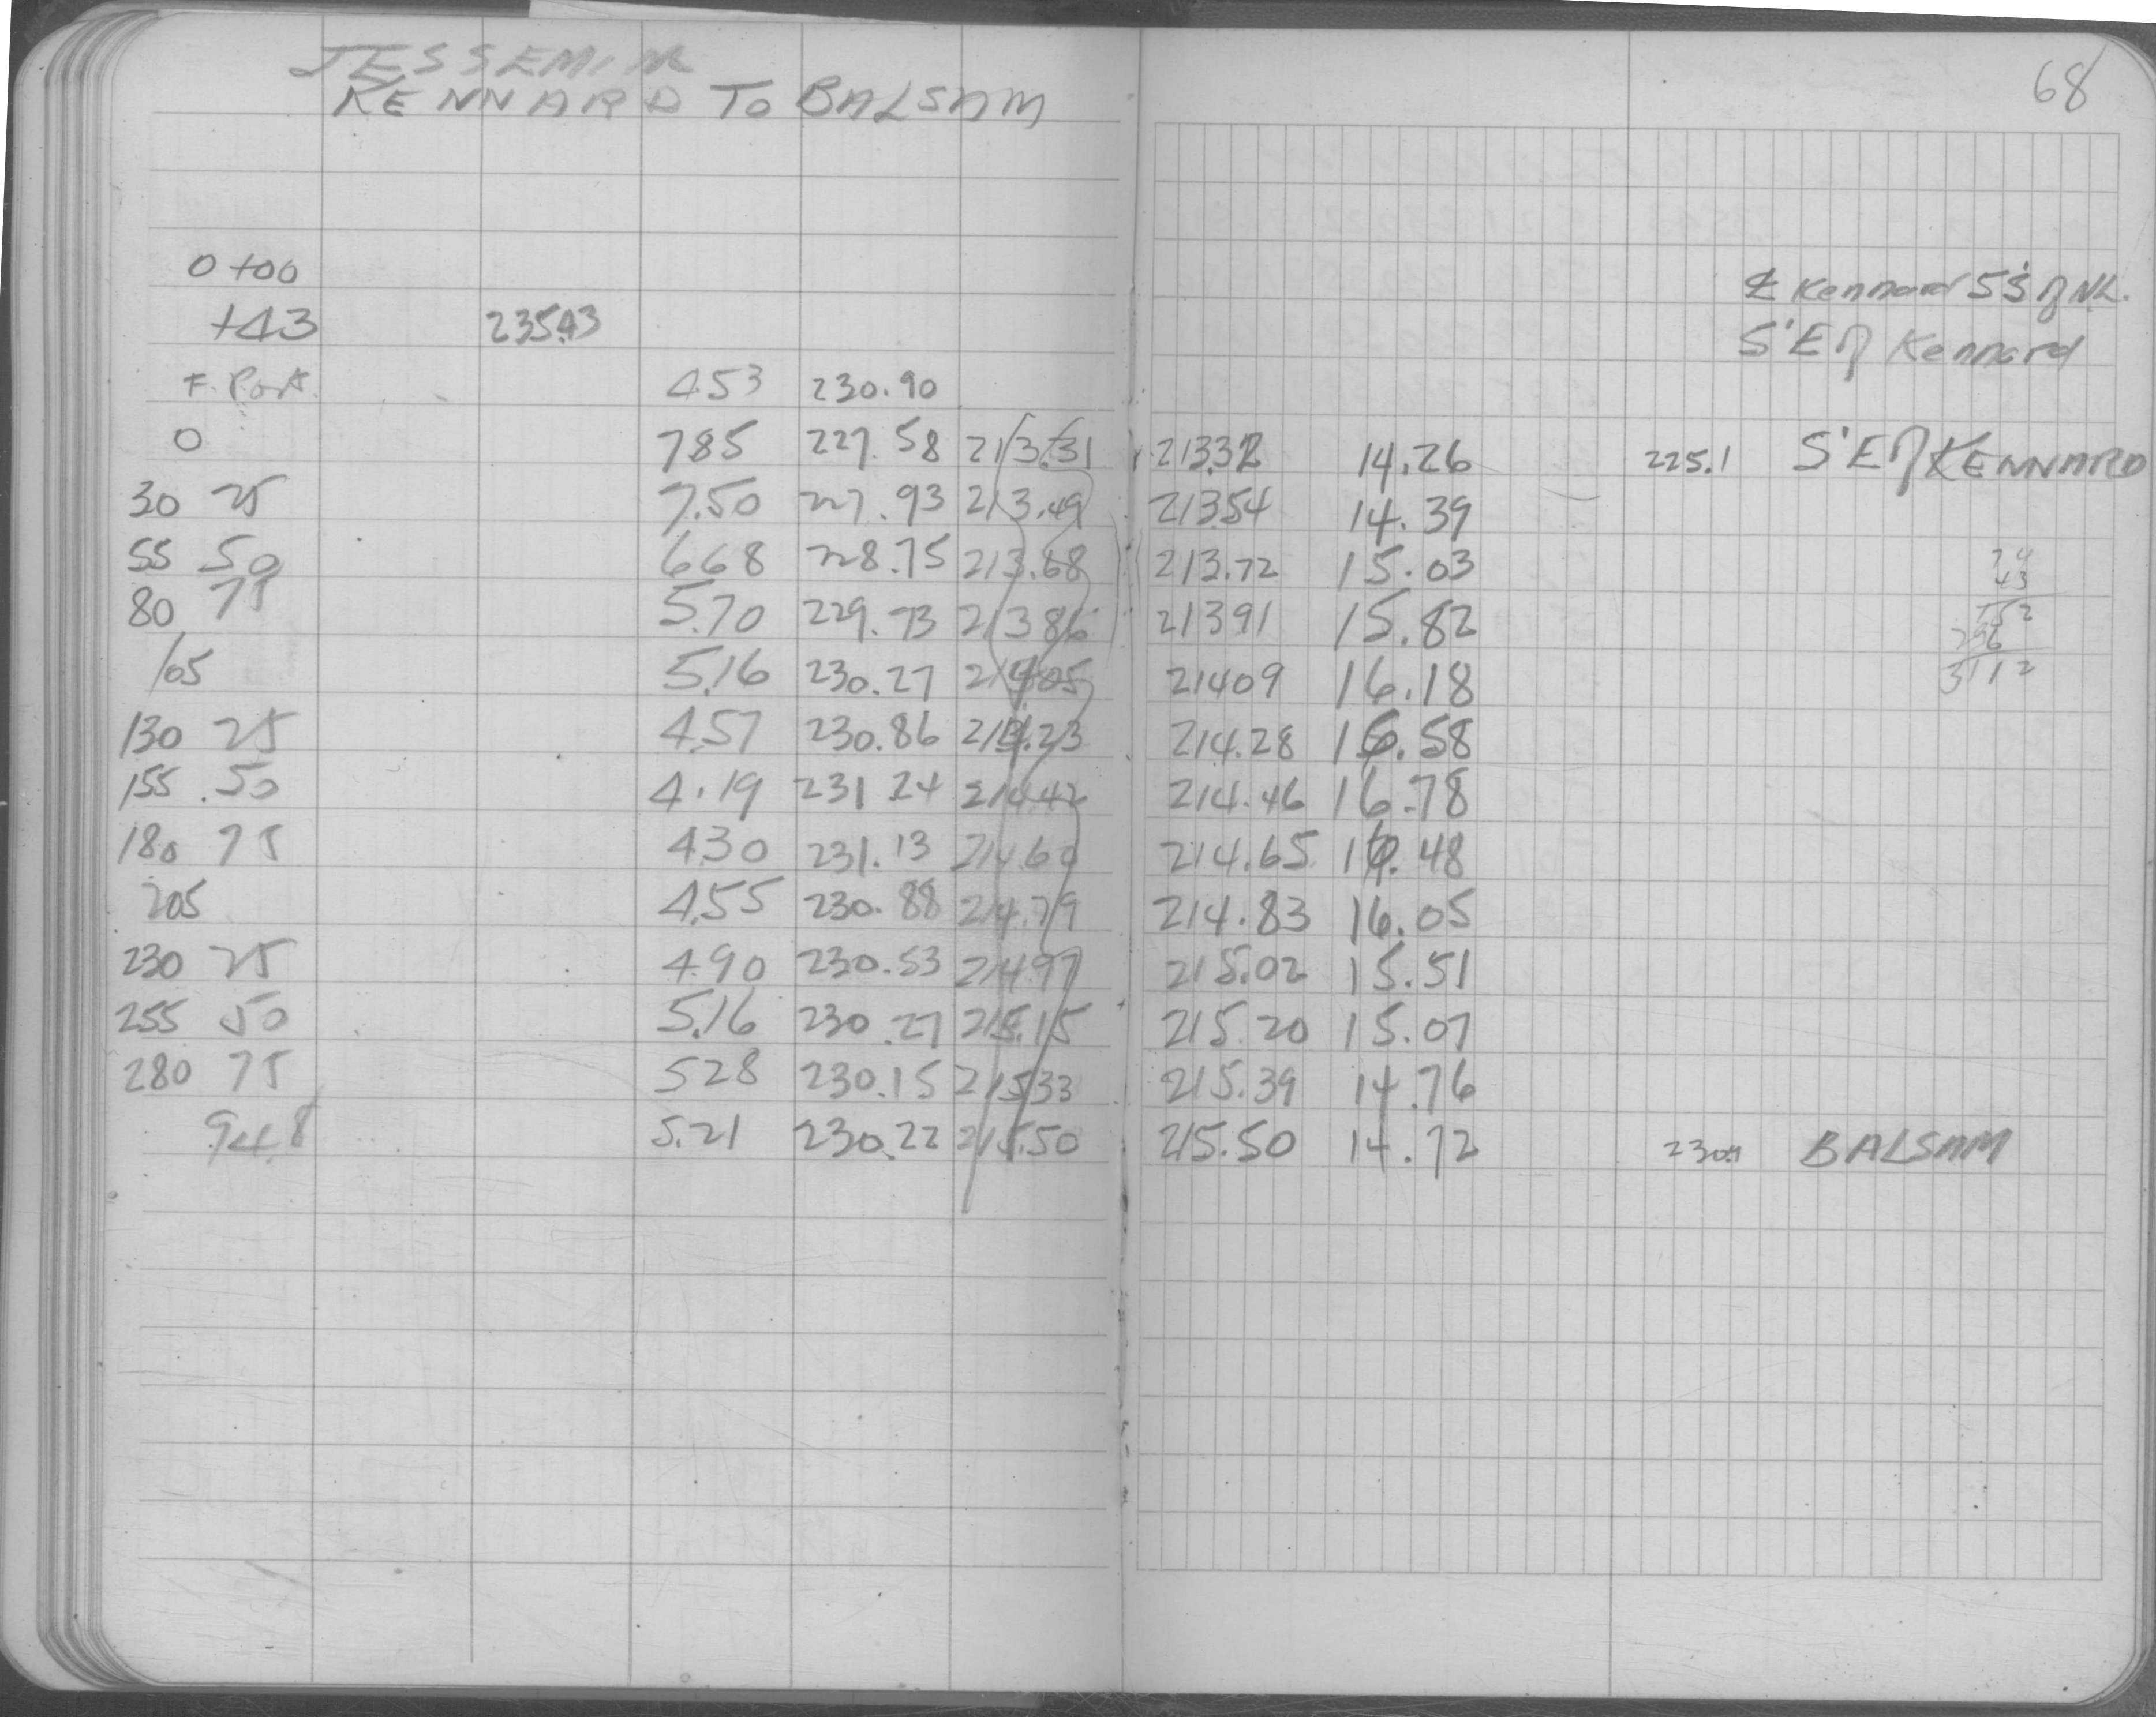 68
JESSEMINE
KENNARD TO BALSAM
0+00 ℄ Kennard 5'S of NL.
+43 235.43 5'E of Kennard
F. Post. 4.53 230.90
0 7.85 227.58 213.31 213.32 14.26 225.1 5'E of KENNARD
30 25 7.50 227.93 213.49 213.54 14.39
55 50 6.68 228.75 213.68 213.72 15.03
80 75 5.70 229.73 213.86 213.91 15.82
105 5.16 230.27 214.05 214.09 16.18
130 25 4.57 230.86 214.23 214.28 16.58
155 50 4.19 231.24 214.42 214.46 16.78
180 75 4.30 231.13 214.60 214.65 16.48
205 4.55 230.88 214.79 214.83 16.05
230 25 4.90 230.53 214.97 215.02 15.51
255 50 5.16 230.27 215.15 215.20 15.07
280 75 5.28 230.15 215.33 215.39 14.76
94.8 5.21 230.22 215.50 215.50 14.72 BALSAM
74
43
296